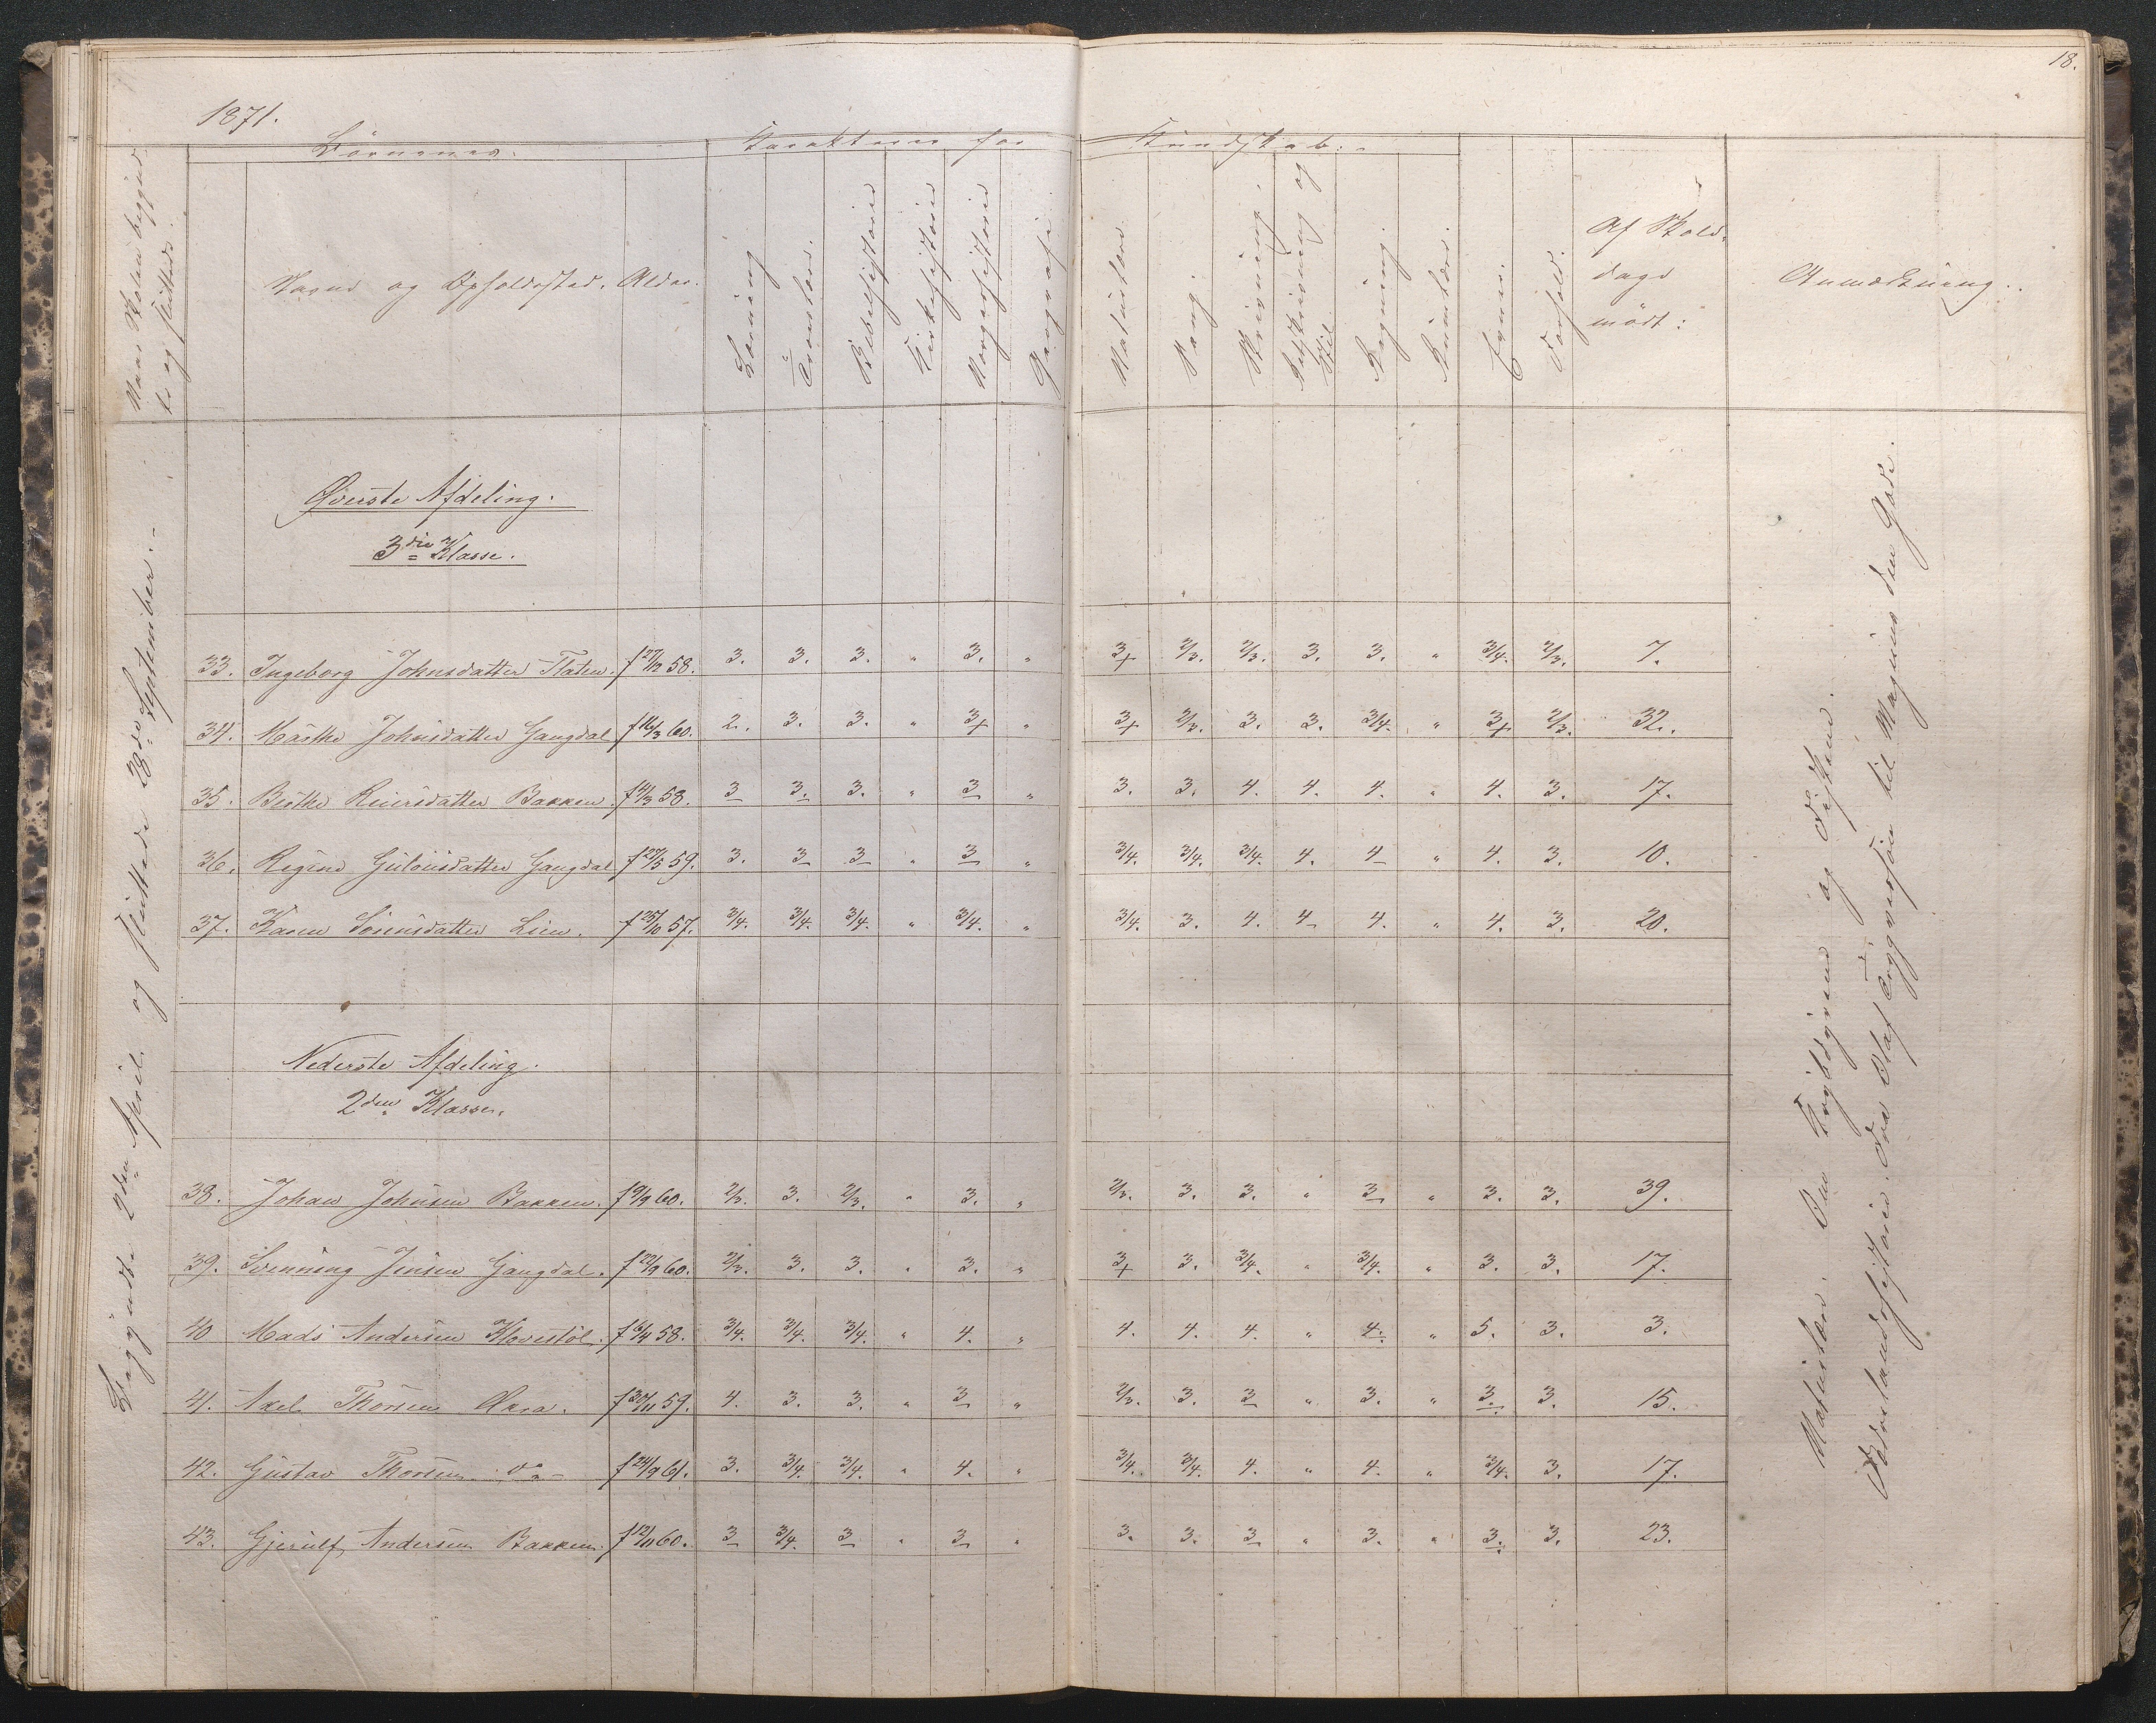 18.
1871.
Naar Skolen begynd-
te og sluttede.
Börnenes.
Karakterer for
Kundskab.
Navne og Opholdssted.
Alder.
Læsning
Troeslære.
Bibelhistorie
Kirkehistorie
Norgeshistorie
Geografi.
Naturlære.
Sang.
Skrivning.
Retskrivning og
Stil.
Regning.
Evner.
Forhold.
Af Skole-
dage
mödt:
Anmærkning.
Begyndte 2den April og sluttede 28de September.
Øverste Afdeling.
3die Klasse.
33. Ingeborg Johnsdatter Flaten. f 27/12 58. 3. 3. 3. " 3. " 3+ 2/3. 2/3. 3. 3. " 3/4. 2/3. 7.
34. Marthe Johnsdatter Gangdal f 16/3 60. 2. 3. 3. " 3+ " 3+ 2/3. 3. 3. 3/4. " 3+ 2/3. 32.
35. Birthe Reiersdatter Bakken. f 14/3 58. 3 3. 3. " 3 " 3. 3. 4. 4. 4. " 4. 3. 17.
36. Regine Gulovsdatter Gangdal f 27/5 59. 3. 3 3 " 3 " 3/4. 3/4. 3/4. 4. 4 " 4. 3. 10.
37. Karen Sörensdatter Lien. f 25/10 57. 3/4. 3/4. 3/4. " 3/4. " 3/4. 3. 4. 4 4. " 4. 3. 20.
Nederste Afdeling.
2den Klasse.
38. Johan Johnsen Bakken. f 9/9 60. 2/3. 3. 2/3. " 3. " 2/3. 3. 3. " 3 " 3. 3. 39.
39. Svenning Jensen Gangdal. f 22/9 60. 2/3. 3. 3. " 3. " 3+ 3. 3/4. " 3/4. " 3. 3. 17.
40 Mads Andersen Hovestöl. f 16/4 58. 3/4. 3/4. 3/4. " 4. " 4. 4. 4. " 4. " 5. 3. 3.
41. Axel Thorsen Øxra. f 30/11 59. 4. 3. 3. " 3 " 2/3. 3. 3 " 3. " 3. 3. 15.
42. Gustav Thorsen do f 24/9 61. 3. 3/4. 3/4. " 4. " 3/4. 3/4. 4. " 4. " 3/4. 3. 17.
43. Gjerulf Andersen Bakken. f 12/11 60. 3 3/4. 3 " 3 " 3. 3. 3 " 3. " 3. 3. 23.
Naturlære. Om Krybdyrene og Fiskene.
Fædrelandshistorie. Fra Olaf Trygvesön til Magnus den Gode.